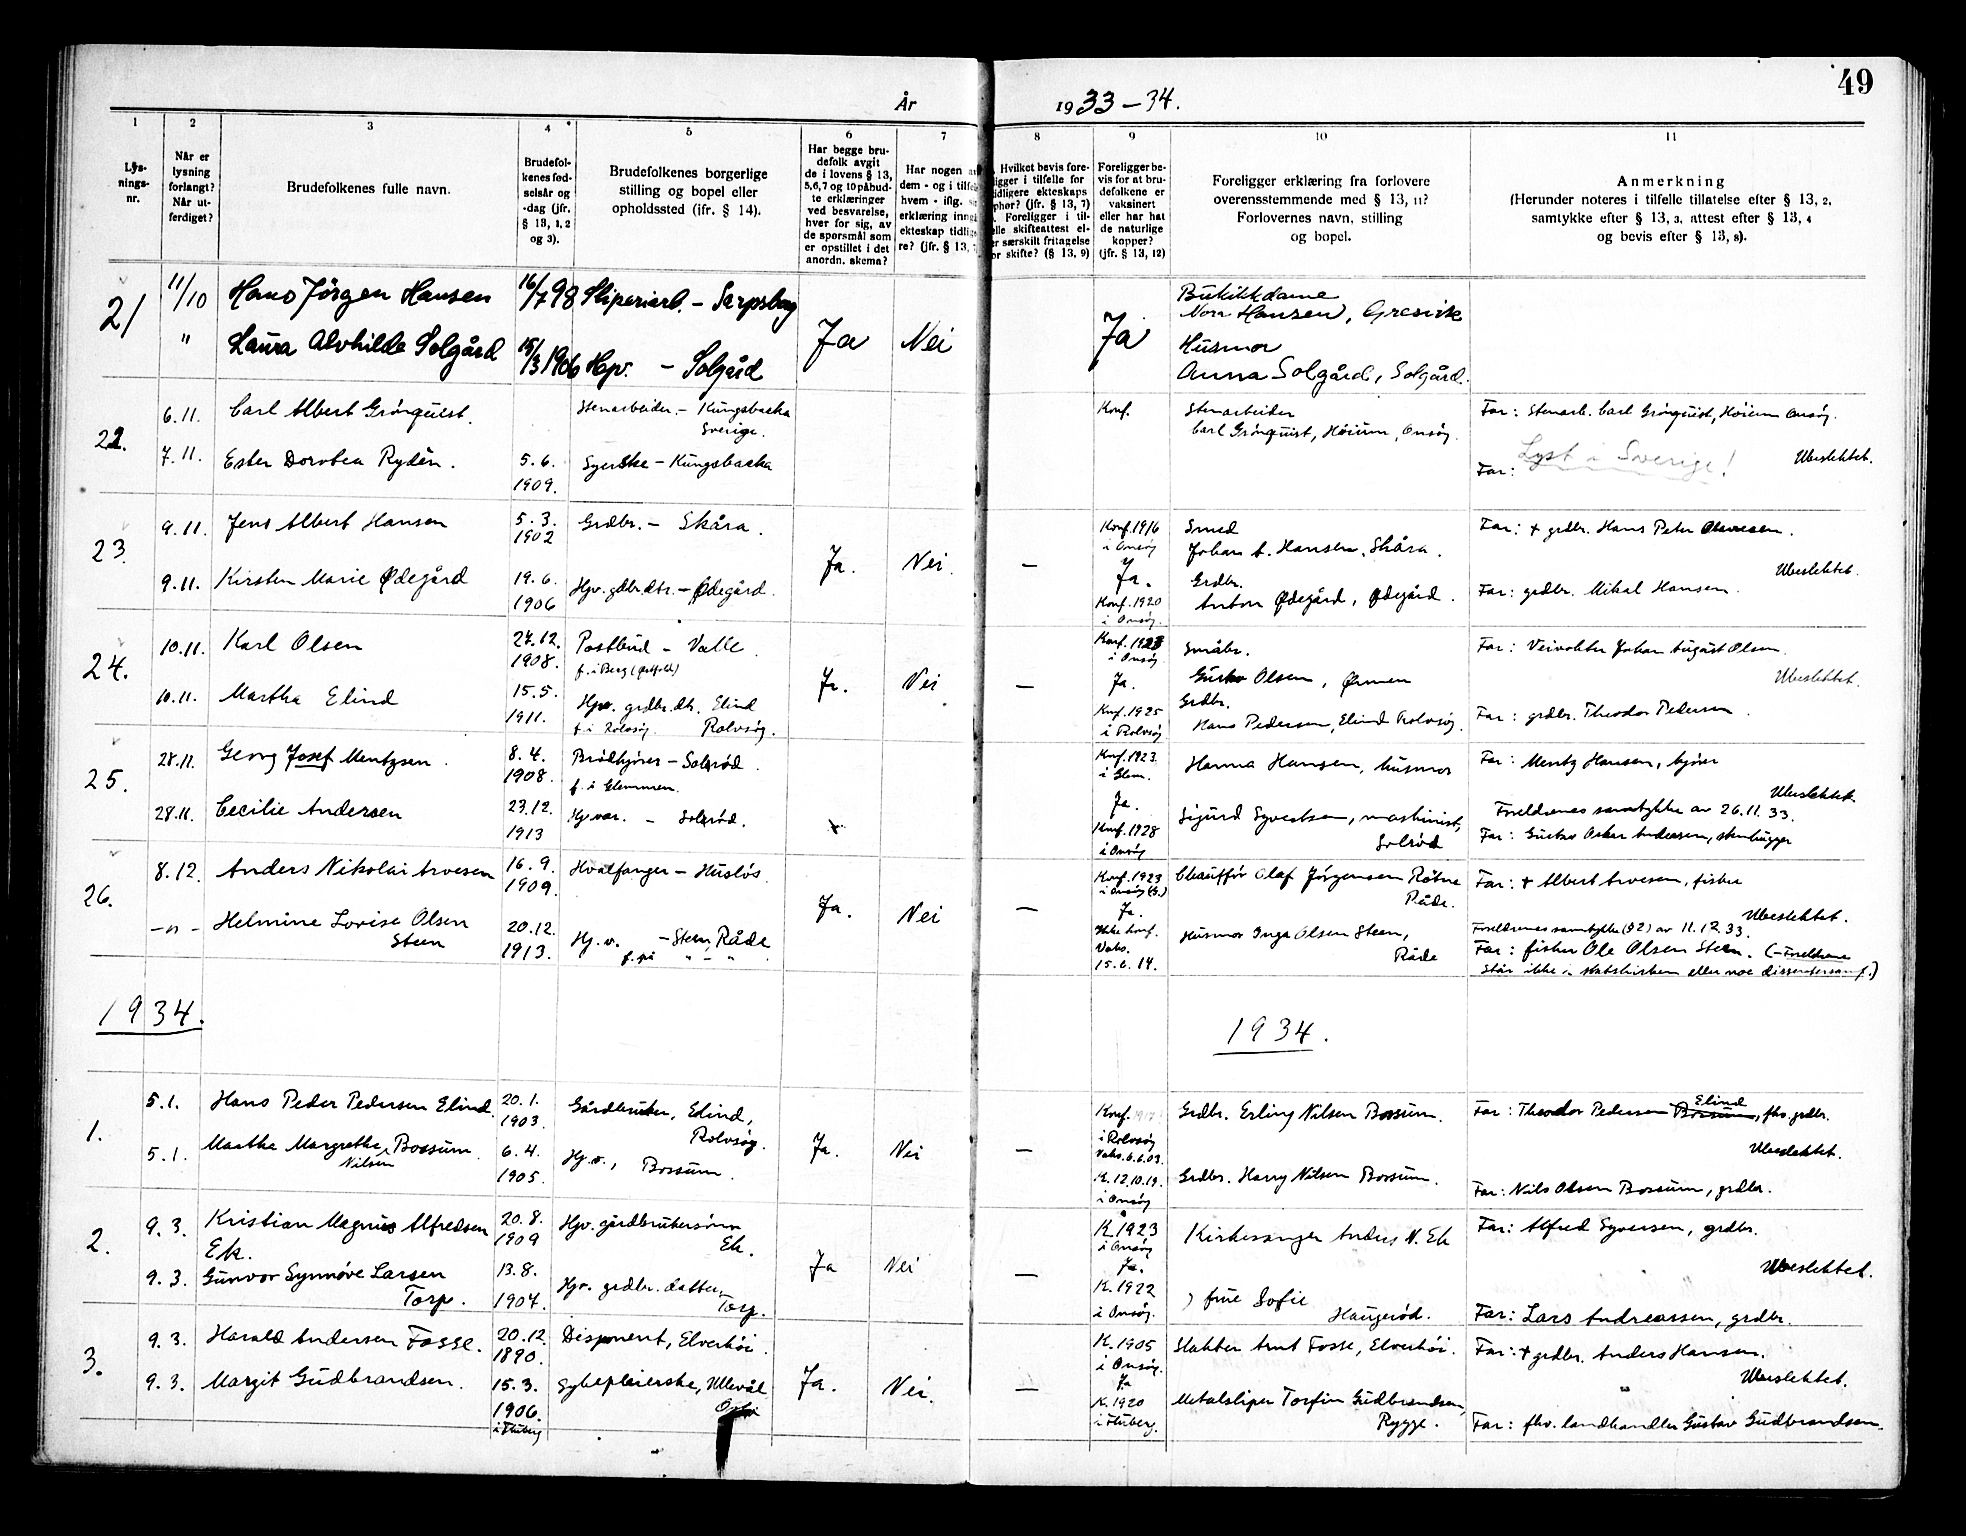 49
År 1933-34.
1
2
3
4
5
6
7
8
9
10
11
Lys-
nings-
nr.
Når er
lysning
forlangt?
Når ut-
ferdiget?
Brudefolkenes fulle navn.
Brudefol-
kenes fød-
selsår og
-dag (jfr.
§ 13, 1, 2
og 3).
Brudefolkenes borgerlige
stilling og bopel eller
opholdssted (ifr. § 14).
Har begge bru-
defolk avgit
de i lovens § 13,
5,6,7 og 10 påbud-
te erklæringer
ved besvarelse,
hver for sig, av
de spørsmål som
er opstillet i det
anordn. skema?
Har nogen
dem - og i
hvem - iflg.
erklæring
ekteskap
re? (jfr. § 13,
Hvilket bevis fore-
ligger i tilfelle for
tidligere ekteskaps
ophør? (jfr. § 13, 7)
Foreligger i til-
felle skifteattest el-
ler særskilt fritagelse
for skifte? (§ 13, 9)
Foreligger be-
vis for at bru-
defolkene er
vaksinert
eller har hat
de naturlige
kopper?
(jfr. § 13, 12)
Foreligger erklæring fra forlovere
overensstemmende med § 13, 11?
Forlovernes navn, stilling
og bopel.
Anmerkning
(Herunder noteres i tilfelle tillatelse efter § 13, 2,
samtykke efter § 13, 3, attest efter § 13, 4
og bevis efter § 13, 8).
21
11/10 Hans Jörgen Hansen 16/7 98 Sliperiarb. - Sarpsborg
" Laura Alvhilde Solgård 15/3 1906 Hpv. - Solgård
Ja Nei Ja
Butikkdame
Nora Hansen, Gresvik
Husmor
Anna Solgård, Solgård.
22.
6.11. Carl Albert Grönquist. Stenarbeider - Kungsbacka
Sverige.
7.11. Ester Dorotea Rydén. 5.6.
1909. Syerske - Kungsbacka
Konf. Stenarbeider
Carl Grönquist, Höium, Onsöy.
Far: Stenarb. Carl Grönquist, Höium Onsöy.
Lyst i Sverige! Ubeslektet.
Far:
23.
9.11. Jens Albert Hansen 5.3.
1902 Grdbr. - Skåra.
9.11. Kirsten Marie Ødegård 19.6.
1906 Hpv. gdbr.dtr. - Ødegård.
Ja. Nei. -
Konf. 1916
i Onsöy
Ja.
Konf. 1920
i Onsöy.
Smed
Johan A. Hansen, Skåra.
Grdbr.
Anton Ødegård, Ødegård.
Far: + grdbr. Hans Peter
Ubeslektet.
Far: grdbr. Mikal Hansen.
24.
10.11. Karl Olsen 27.12.
1908. Postbud - Valle.
f. i Berg (Østfold)
10.11. Martha Elind 15.5.
1911. Hpv. grdbr.dtr. Elind
f. i Rolvsöy. Rolvsöy.
Ja. Nei -
Konf. 1923
i Onsöy
Ja.
Konf. 1925
i Rolvsöy
Småbr.
Gustav Olsen, Ørmen
Grdbr.
Hans Pedersen, Elind Rolvsöy
Far: Veivokter Johan August Olsen.
Ubeslektet.
Far: grdbr. Theodor Pedersen.
25.
28.11. Georg Josef Mentzsen. 8.4.
1908. Brödkjörer - Solsröd.
f. i Glemmen.
28.11. Cecilie Andersen 23.12.
1913 Hjvær. - Solsröd.
Konf. 1923.
i Glem.
Ja.
Konf. 1928
i Onsöy
Hanna Hansen, husmor
Sigurd Syvertsen, maskinist,
Solsröd
Far: Mentz Hansen, kjörer
Ubeslektet.
Foreldrenes samtykke av 26.11.33.
Far: Gustav Oskar Andersen, stenhugger
26.
8.12. Anders Nikolai Arvesen 16.9.
1909. Hvalfanger - Huslös.
-"- Helmine Lovise Olsen
Steen 20.12.
1913. Hj.v. - Steen, Råde
f. på " - "
Ja. Nei -
Konf. 1923
i Onsöy
Ja.
Ikke konf.
Vaks.
15.6.14.
Chaufför Olaf Jörgensen Rötne
Råde.
Husmor Inga Olsen Steen,
Råde
Far: + Albert Arvesen, fisker
Ubeslektet.
Foreldrenes samtykke av 11.12.33.
Far: fisker Ole Olsen Steen. (-Foreldrene
står ikke i statskirken eller noe dissentersamf.)
1934.
1934.
1.
5.1. Hans Peder Pedersen Elind. 20.1.
1903. Gårdbruker, Elind,
Rolvsöy.
5.1. Marthe Margrethe Bossum.
Nilsen
6.4.
1905. Hj.v., Bossum.
Ja. Nei -
Konf.
i Rolvsöy
Vaks. 6.6.03.
K. 12.10.19.
i Onsöy
Grdbr. Erling Nilsen Bossum.
Grdbr. Harry Nilsen Bossum.
Far: Theodor Pedersen Bossum, fhv. grdbr.
Elind
Ubeslektet.
Far: Nils Olsen Bossum, grdbr.
2.
9.3. Kristian Magnus Alfredsen
Ek. 20.8.
1909 Hjv. gårdbrukersönn
Ek.
9.3. Gunvor Synnöve Larsen
Torp. 13.8.
1904. Hjv. grdbr. datter,
Torp.
Ja Nei -
K 1923
i Onsöy
Ja.
K. 1922
i Onsöy.
Kirkesanger Anders N. Ek
frue Sofie
Haugeröd.
Far: Alfred Syversen, grdbr.
Ubeslektet.
Far: Lars Andreassen, grdbr.
3.
9.3. Harald Andersen Fosse. 20.12.
1890. Disponent, Elverhöi.
9.3. Margit Gudbrandsen. 15.3.
1906.
i Fluberg Sykepleierske, Ullevål
Oslo
Ja. Nei. -
K. 1905
i Onsöy.
Ja
K. 1920
i Fluberg.
Slakter Arnt Fosse, Elverhöi.
Metalsliper Torfin Gudbrandsen,
Rygge.
Far: + grdbr. Anders Hansen.
Ubeslektet.
Far: fhv. landhandler Gustav Gudbrandsen.